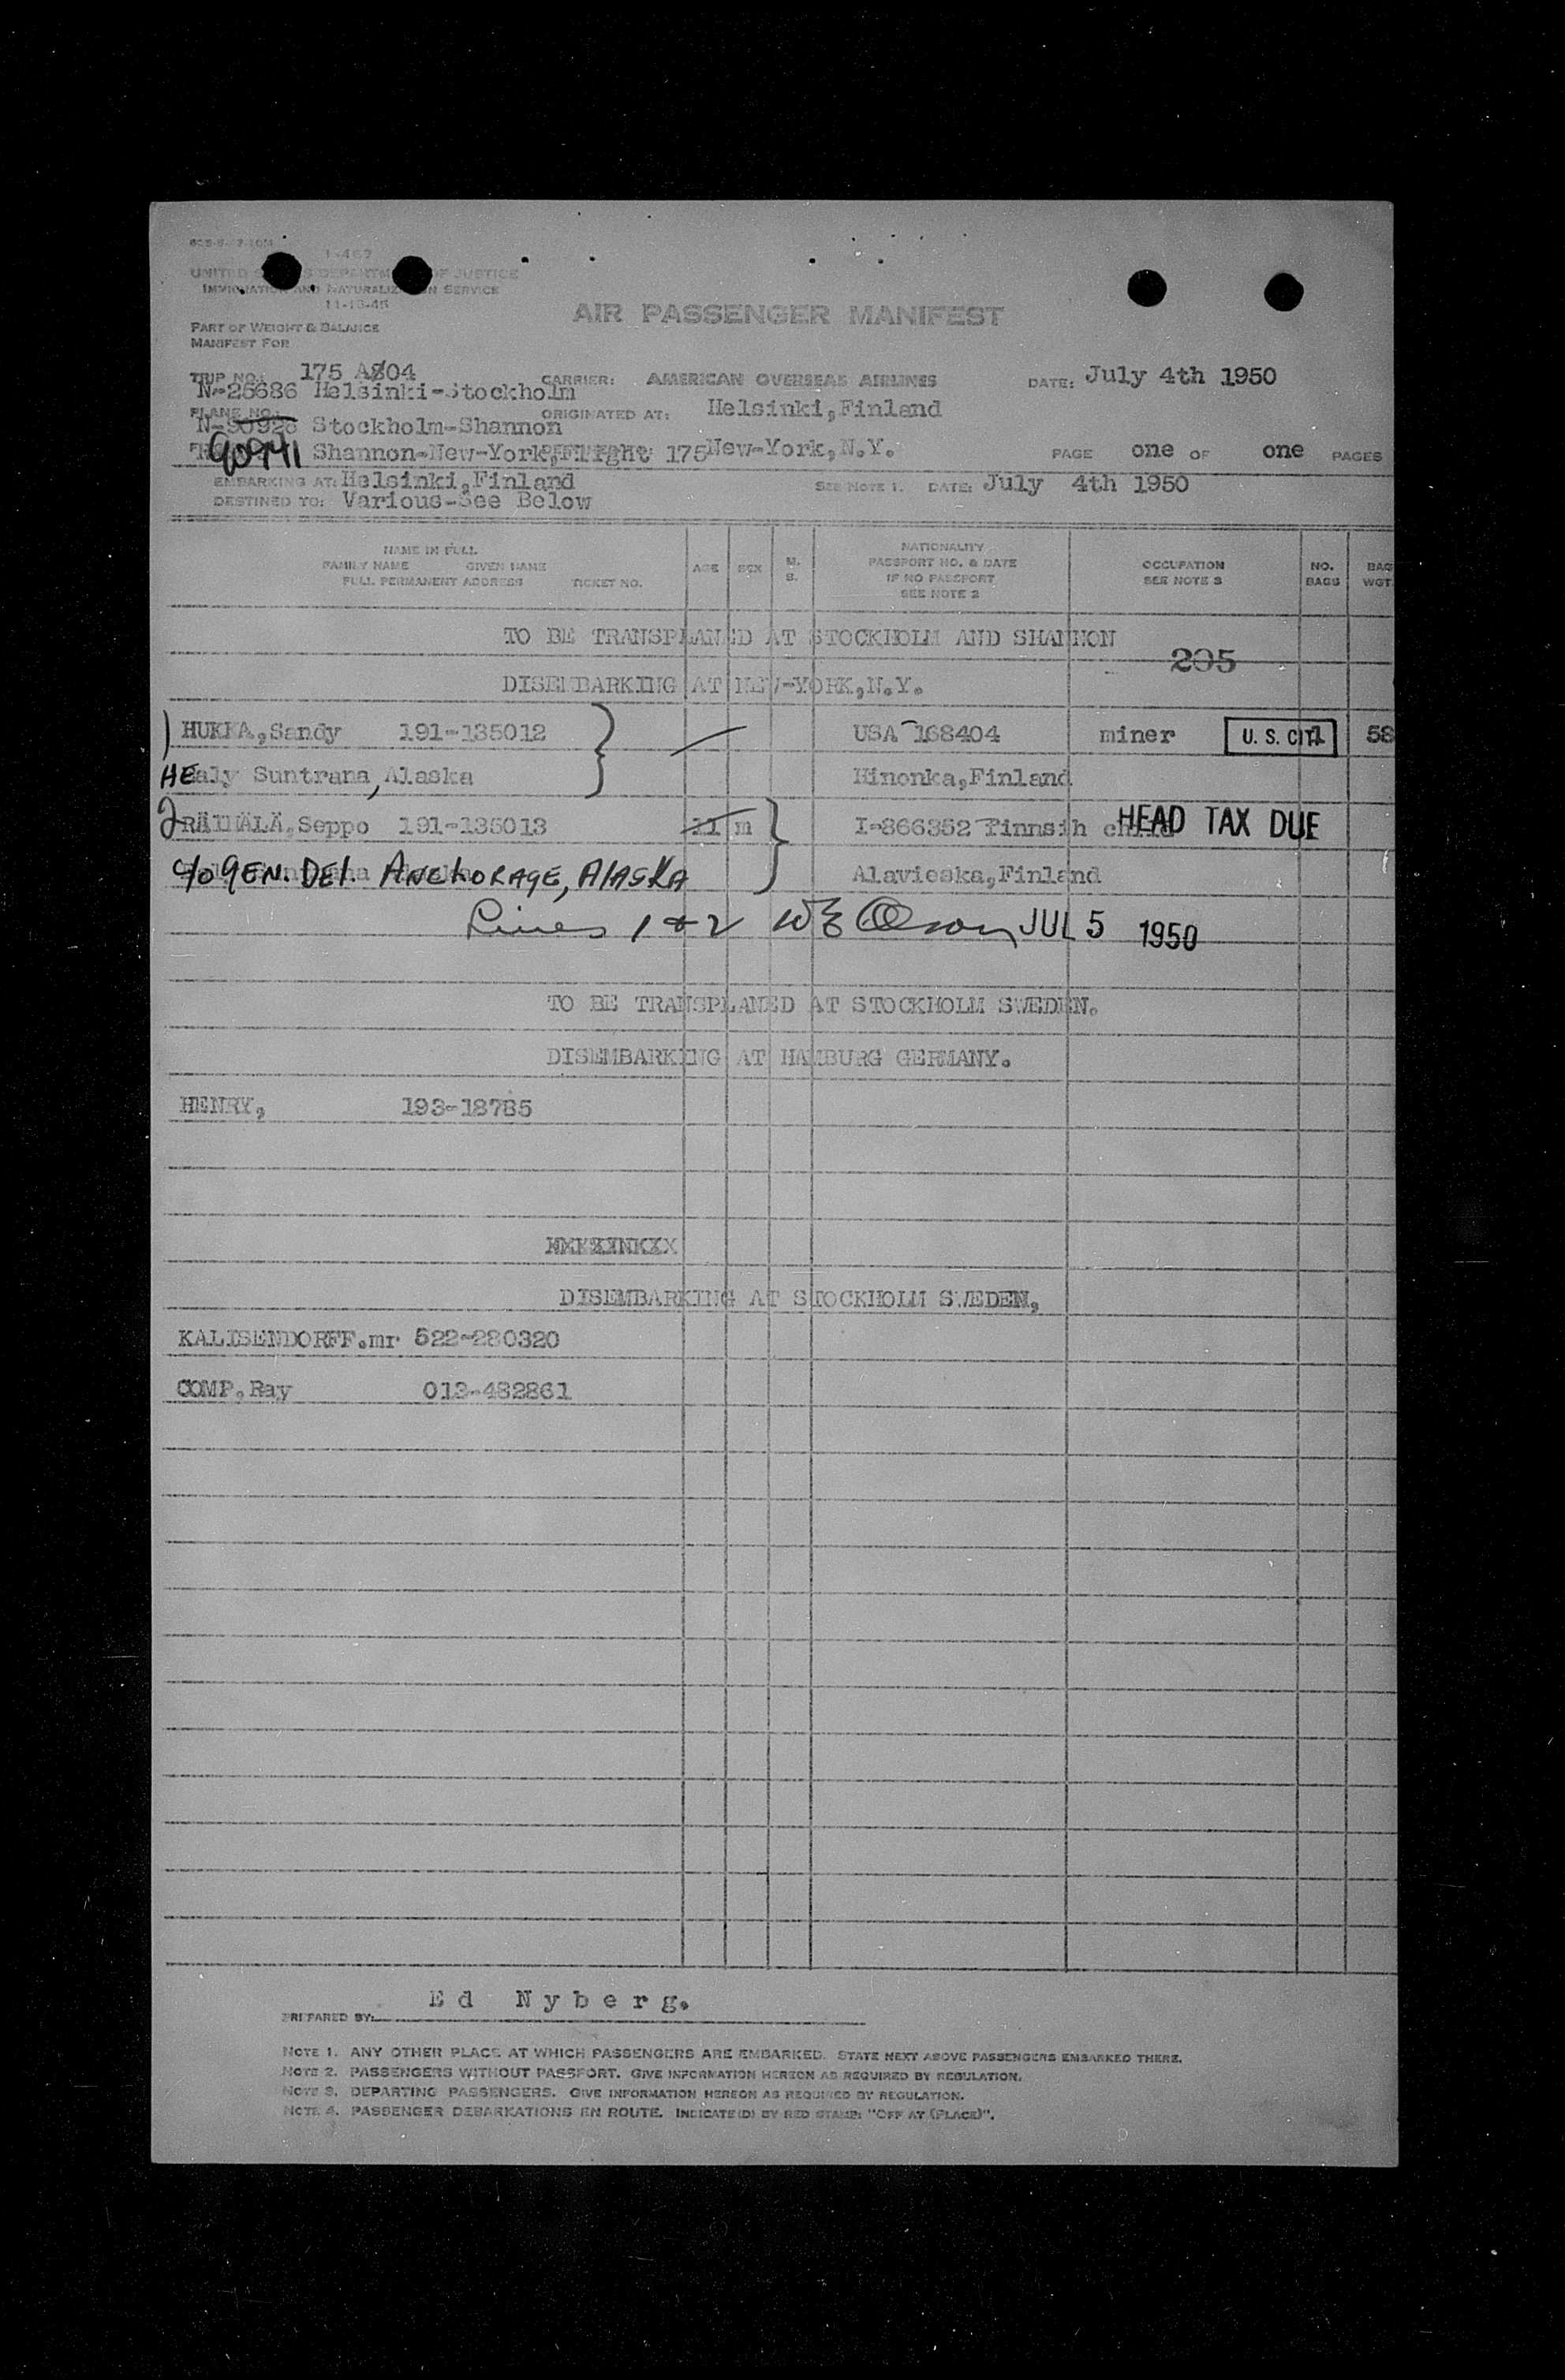 I-467
UNITED STATES DEPARTMENT OF JUSTICE
IMMIGRATION AND NATURALIZATION SERVICE
11-13-45
AIR PASSENGER MANIFEST
PART OF WEIGHT & BALANCE
MANIFEST FOR
TRIP NO.: 175 A804 CARRIER: AMERICAN OVERSEAS AIRLINES DATE: July 4th 1950
N-25686 Helsinki-Stockholm
PLANE NO.: ORIGINATED AT: Helsinki,Finland
N-90926 Stockholm-Shannon
90941 Shannon-New-York,Flight 175 New-York,N.Y. PAGE one OF one PAGES
EMBARKING AT: Helsinki,Finland SEE NOTE 1. DATE: July 4th 1950
DESTINED TO: Various-See Below
NAME IN FULL
FAMILY NAME GIVEN NAME
FULL PERMANENT ADDRESS TICKET NO.
AGE SEX M. S.
NATIONALITY
PASSPORT NO. & DATE
IF NO PASSPORT
SEE NOTE 2
OCCUPATION
SEE NOTE 3
NO.
BAGS
BAG
WGT.
TO BE TRANSPLANED AT STOCKHOLM AND SHANNON
205
DISEMBARKING AT NEW-YORK,N.Y.
1 HUKKA,Sandy 191-135012 USA 168404 miner U. S. CIT. 1 58
HEaly Suntrana, Alaska Hinonka,Finland
2 RÄIHÄLÄ,Seppo 191-135013 11 m I-866352 finnsih child HEAD TAX DUE
c/o GEN. DEL. ANCHORAGE, ALASKA Alavieska,Finland
Lines 1 & 2 WE Olson JUL 5 1950
TO BE TRANSPLANED AT STOCKHOLM SWEDEN.
DISEMBARKING AT HAMBURG GERMANY.
HENRY, 193-18785
DISEMBARKING AT STOCKHOLM SWEDEN,
KALISENDORFF.mr 522-280320
COMP.Ray 012-482861
PREPARED BY: Ed Nyberg.
NOTE 1. ANY OTHER PLACE AT WHICH PASSENGERS ARE EMBARKED. STATE NEXT ABOVE PASSENGERS EMBARKED THERE.
NOTE 2. PASSENGERS WITHOUT PASSPORT. GIVE INFORMATION HEREON AS REQUIRED BY REGULATION.
NOTE 3. DEPARTING PASSENGERS. GIVE INFORMATION HEREON AS REQUIRED BY REGULATION.
NOTE 4. PASSENGER DEBARKATIONS EN ROUTE. INDICATE(D) BY RED STAMP: "OFF AT (PLACE)".